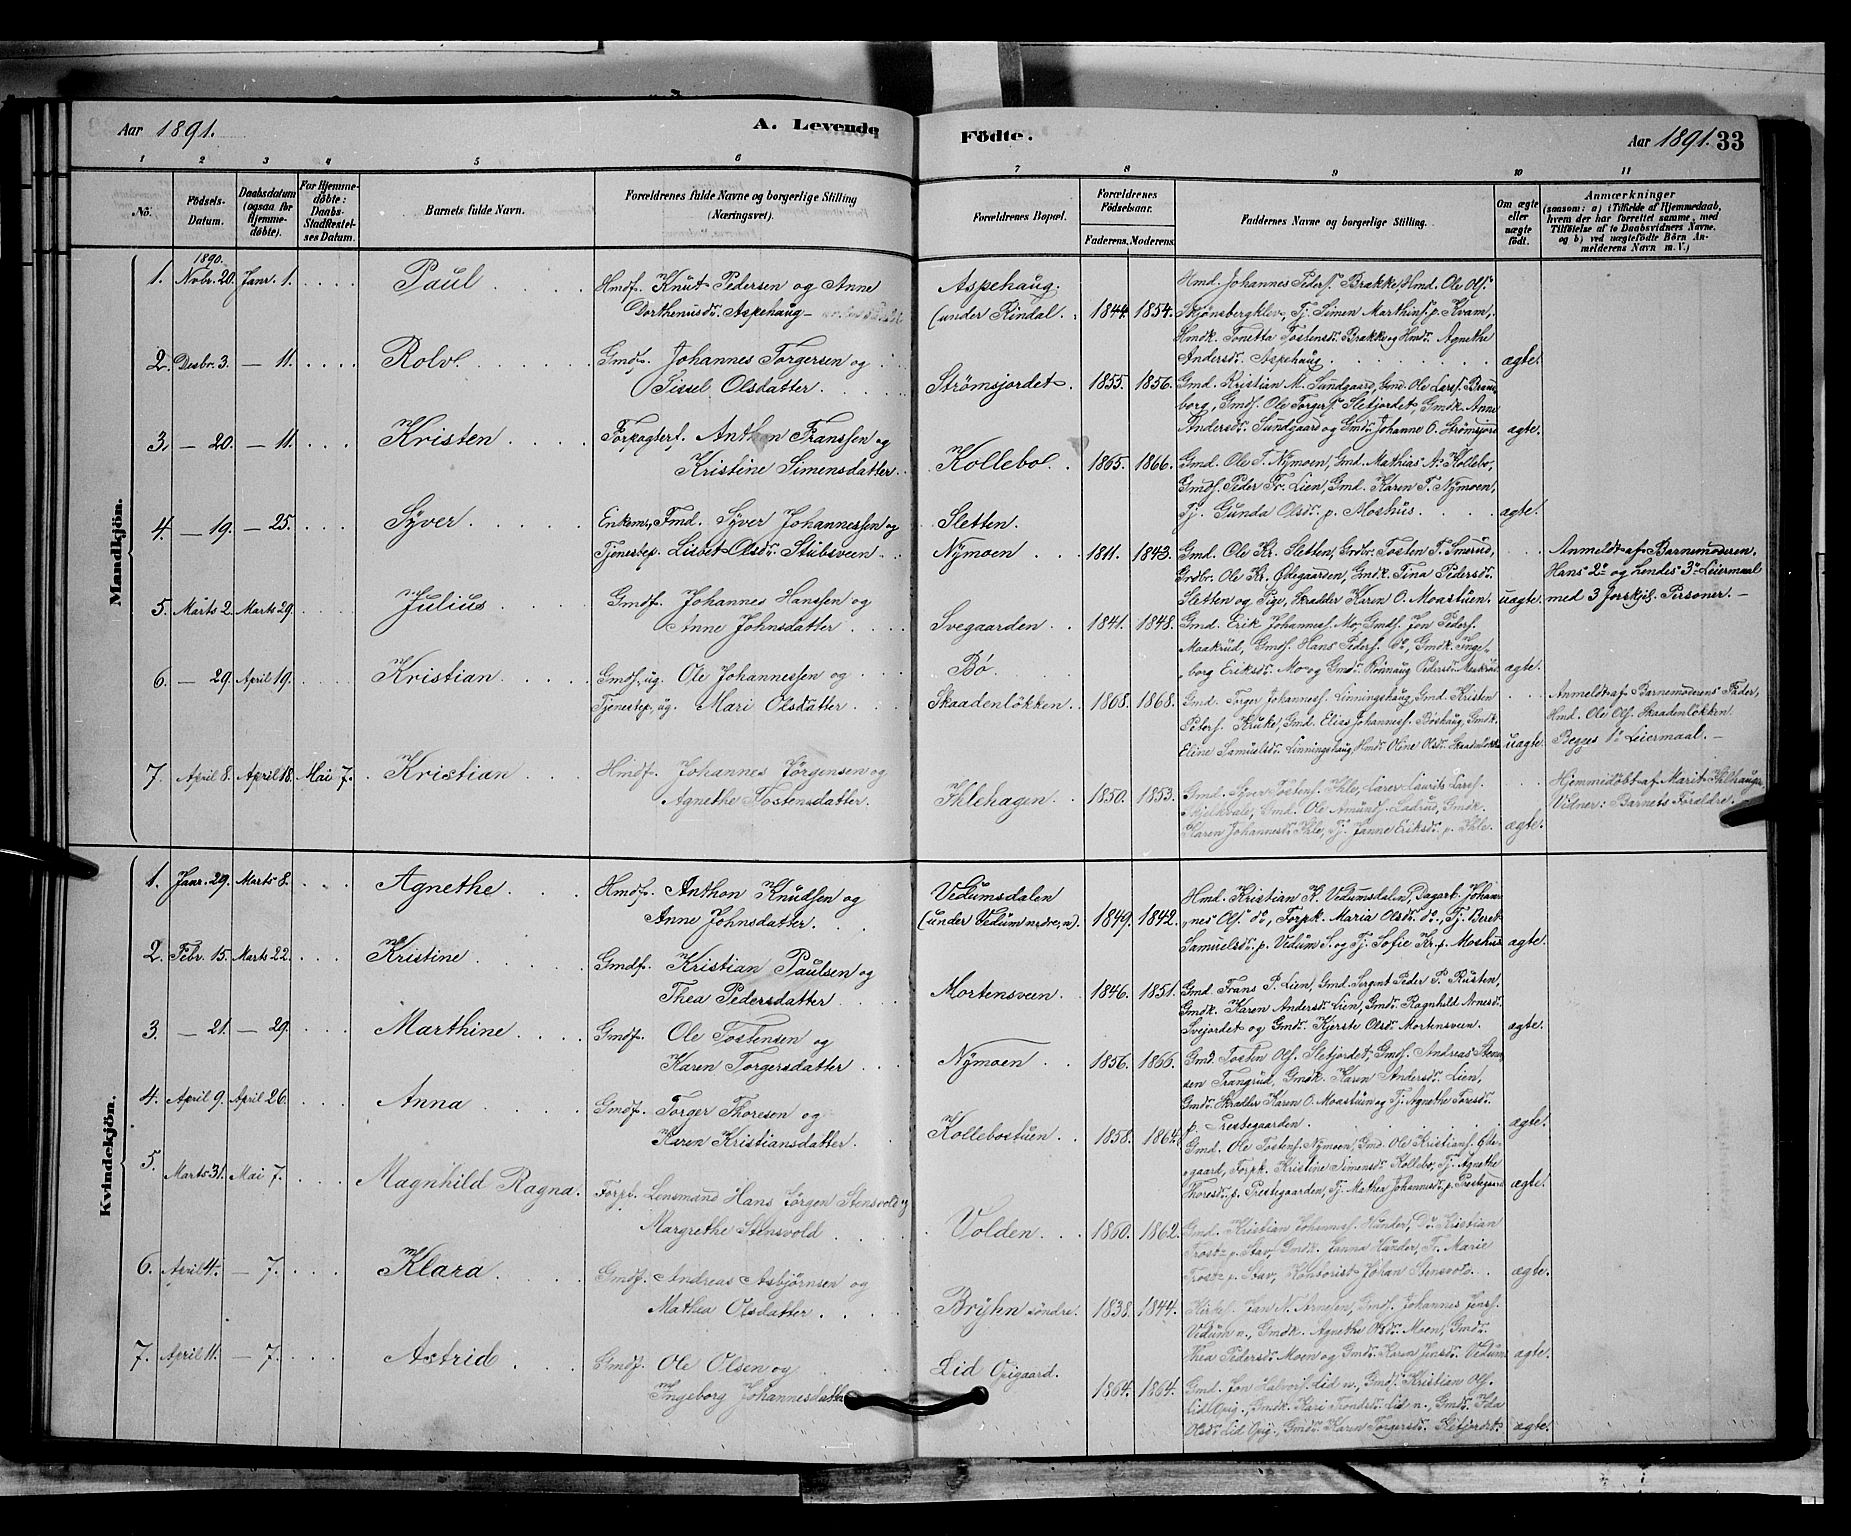 Aar 1891.
A. Levende Födte.
Aar 1891. 33
1 2 3 4 5 6 7 8 9 10 11
No.
Födsels-Datum.
Daabsdatum (ogsaa for Hjemme-döbte).
For Hjemme-döbte: Daabs-Stadfæstel-ses Datum.
Barnets fulde Navn.
Forældrenes fulde Navne og borgerlige Stilling (Næringsvei).
Forældrenes Bopæl.
Forældrenes Födselsaar.
Faderens. Moderens.
Faddernes Navne og borgerlige Stilling.
Om ægte eller uægte födt.
Anmærkninger
(saasom: a) i Tilfælde af Hjemmedaab, hvem der har forrettet samme, med Tilföielse af to Daabsvidners Navne. og b) ved uægtefödte Börn An-melderens Navn m. V.)
Mandkjön.
1. 1890. Novbr. 20. Janr. 1. Paul Hmdf. Knut Pedersen og Anne
Dorthenusdr. Aspehaug
Aspehaug.
(under Rindal. 1844. 1854.
Hmd. Johannes Peders. Brakke, Hmd. Ole Ols.
Skjønsbergklev, Tj. Simen Marthins. p. Kvam,
Hmdk. Tonetta Tostensdr. Brakke og Hmdr. Agnethe
Andersdr. Aspehaug ægte.
2. Desbr. 3. — 11. Rolv. Gmdf. Johannes Torgersen og
Sissel Olsdatter. Strømsjordet. 1855. 1856.
Gmd. Kristian M. Sundgaard, Gmd. Ole Lars. Brand
borg, Gmds. Ole Torgers. Sletjordet, Gmdk. Anne
Andersdr. Sundgaard og Gmdr. Johanne O. Strømsjord ægte.
3. — 20. — 11. Kristen Forpagterf. Anthon Franssen og
Kristine Simensdatter. Kollebo. 1865. 1866.
Gmd. Ole T. Nymoen, Gmd. Mathias A. Kollebo,
Gmds. Peder Fr. Lien, Gmd. Karen T. Nymoen,
Tj. Gunda Olsdr. p. Moshus. ægte.
4. — 19. — 25. Syver. Enkem, Fmd. Syver Johannessen og
Tjenestep. Lisbet Olsdr. Stubsveen
Sletten.
Nymoen 1811. 1843.
Gmd. Ole Kr. Sletten, Grdbr. Tosten T. Smerud,
Grdbr. Ole Kr. Ødegaarden, Gmdk. Tina Pedersdr.
Sletten og Pige, Skrædder Karen O. Moastuen. uægte.
Anmeldt af Barnemoderen.
Hans 2° og hendes 3° Leiermaal
med 3 forskjel. Personer. —
5. Marts 2. Marts 29. Julius Gmdf. Johannes Hanssen og
Anne Johnsdatter Svegaarden 1841. 1848.
Gmd. Erik Johanness. Mo, Gmds. Jon Peders.
Maakrud, Gmds. Hans Peders. do, Gmdk. Inge-
borg Eriksdr. Mo og Gmdr. Rønnaug Pedersdr. Maakrud ægte.
6. — 29. April 19. Kristian Gmds, ug. Ole Johannessen og
Tjenestep, ug. Mari Olsdatter
Bø
Skaadenløkken. 1868. 1868.
Gmd. Torger Johanness. Linningshaug, Gmd. Kristen
Peters. Kruke, Gmd. Elias Johanness. Bøshaug, Gmdk.
Eline Samuelsdr. Linningshaug, Hmdr. Oline Olsdr. Skaadenløkk. uægte.
Anmeldt af Barnemoderens Fader,
Hmd. Ole Ols. Skaadenløkken.
Begges 1° Leiermaal. —
7. April 8. April 18. Mai 7. Kristian Hmdf. Johannes Jørgensen og
Agnethe Tostensdatter. Ihlehagen. 1850. 1853.
Gmd. Syver Tostens. Ihle, Lærer Laurits Lars.
Skielkvale, Gmd. Ole Amunds. Ladrud, Gmdk.
Karen Johannesdr. Ihle, Tj. Janne Eriksdr. p. Ihle. ægte.
Hjemmedøbt af Marit Ihlhaugen
Vidner: Barnets Forældre.
Kvindekjön.
1. Janr. 29. Marts 8. Agnethe. Hmdf. Anthon Knudssen og
Anne Johnsdatter.
Vedumsdalen
(under Vedum nedre, n). 1849. 1842.
Hmd. Kristian K. Vedumsdalen, Dagarb. Johan-
nes Ols. do, Forpk. Maria Olsdr. do., Tj. Beret
Samuelsdr. p. Vedum S. og Tj. Sofie Kr. p. Moshus ægte.
2. Febr. 15. Marts 22. Kristine Gmdf. Kristian Paulsen og
Thea Pedersdatter Mortensveen. 1846. 1851.
Gmd. Frans P. Lien, Gmd. Sergent Peder P. Rusten,
Gmdk. Karen Andersdr. Lien, Gmdr. Ragnhild Arnesdr.
Svejordet og Gmdr. Kjersti Olsdr. Mortensveen ægte.
3. — 21. — 29. Marthine Gmdf. Ole Tostensen og
Karen Torgersdatter Nymoen 1856. 1866.
Gmd. Tosten Ols. Sletjordet, Gmds. Andreas Sten-
sen Trangrud, Gmdk. Karen Andersdr. Lien,
Gmdr. Skrædder Karen O. Moastuen og Tj. Agnethe Toresdr.
p. Prestegaarden. ægte.
4. April 9. April 26. Anna Gmdf. Torger Thoresen og
Karen Kristiansdatter. Kollebostuen. 1858. 1864.
Gmd. Ole Tostens. Nymoen, Gmd. Ole Kristians. Øde-
gaard, Forpk. Kristine Simensdr. Kollebo, Tj. Agnethe
Thoresdr. p. Prestegaarden, Tj. Mathea Johannesdr. p. Prestegaard ægte.
5. Marts 31. Mai 7. Magnhild Ragna. Forpf. Lensmand Hans Jørgen Stensvold og
Margrethe Stensvold Volden 1860. 1862.
Gmd. Kristian Johanness. Hunder, Do. Kristian
Trost p. Stav, Gmdk. Janna Hunder, Fr. Marie
Trost p. Stav, Kontorist Johan Stensvold. ægte.
6. April 4. — 7. Klara Gmdf. Andreas Asbjørnsen og
Mathea Olsdatter. Bryhn søndre. 1838. 1844.
Kirkes. Jan N. Arnesen, Gmds. Johannes Jens.
Vedum n., Gmdk. Agnethe Olsdr. Moen, Gmdr.
Thea Pedersdr. Moen og Gmdr. Karen Jensdr. Vedum ægte.
7. April 11. — 7. Astrid Gmdf. Ole Olsen og
Ingeborg Johannesdatter Lid Opigaard. 1864. 1864.
Gmd. Jon Halvors. Lid n., Gmds. Kristian Ols.
Lid Opig., Gmdk. Kari Trondsdr. Lid n., Gmdr. Ida
Olsdr. Lid Opig., Gmdr. Karen Torgersdr. Sletjordet ægte.